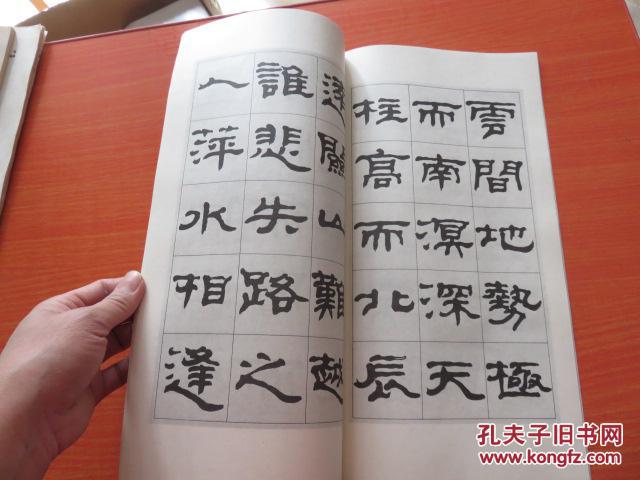 雲間地勢極
而南溟深天
柱高而北辰
遠關山難越
誰悲失路之
人萍水相逢
孔夫子旧书网
www.kongfz.com